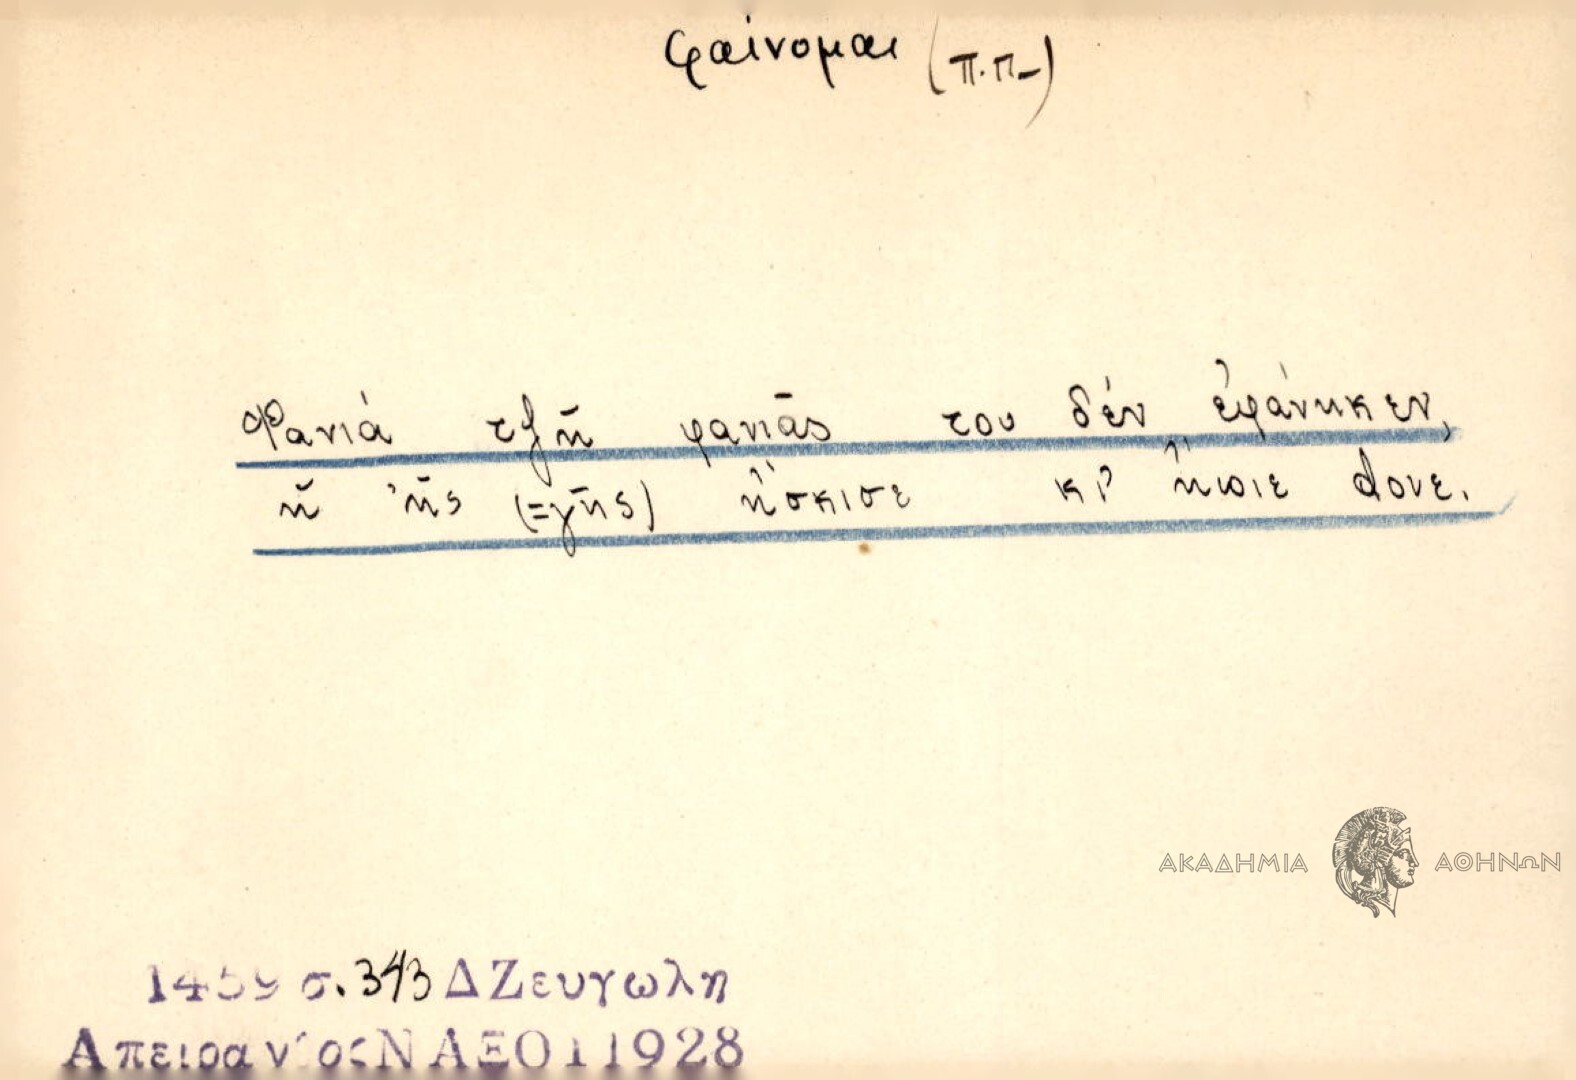 φαίνομαι (π.π-)
Φανιά τζῆ φανιᾶς του δέν ἐφάνηκεν,
ἤ 'ῆς (=γῆς) ἤσκισε κι' ἤπιε dονε.
ΑΚΑΔΗΜΙΑ ΑΘΗΝΩΝ
1459 σ. 343 Δ Ζευγωλη
Απειρανίος ΝΑΞΟΙ 1928